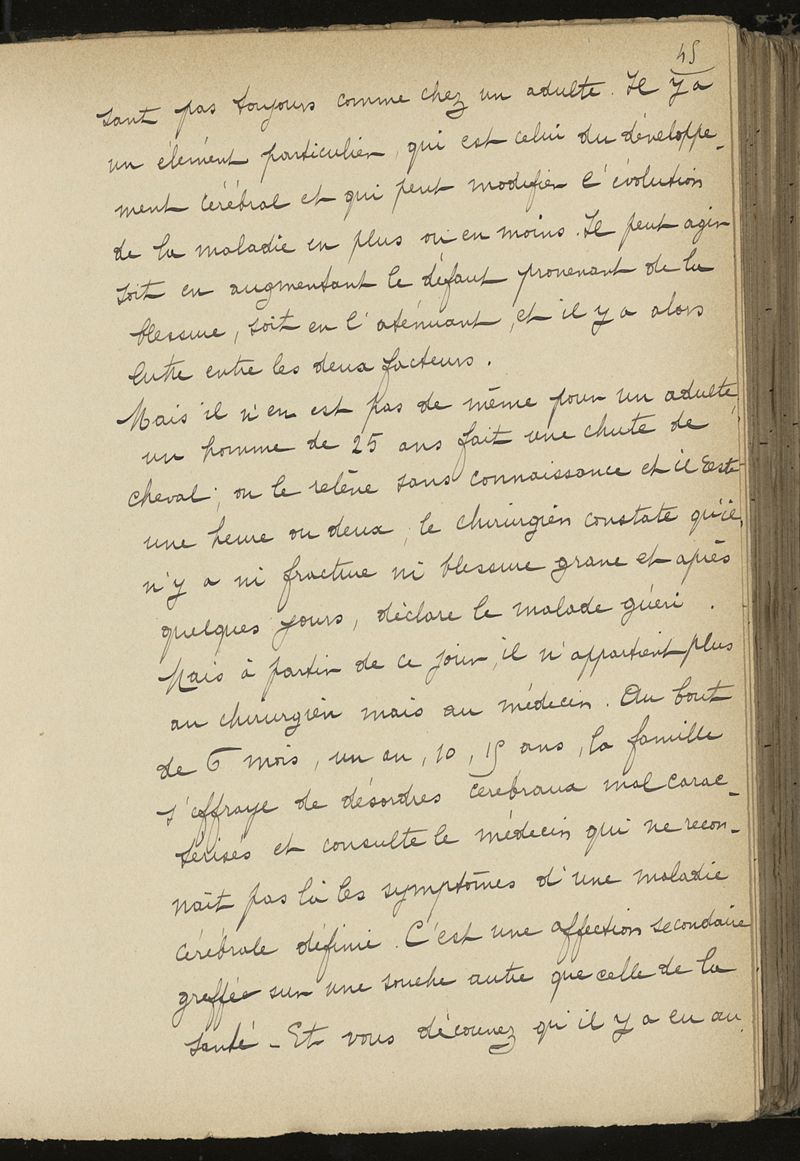 45
sant pas toujours comme chez un adulte. Il y a
un élément particulier, qui est celui du développe-
ment cérébral et qui peut modifier l'évolution
de la maladie en plus ou en moins. Il peut agir
soit en augmentant le défaut provenant de la
blessure, soit en l'aténuant, et il y a alors
lutte entre les deux facteurs.
Mais il n'en est pas de même pour un adulte,
un homme de 25 ans fait une chute de
cheval; on le relève sans connaissance et il reste
une heure ou deux; le chirurgien constate qu'il
n'y a ni fracture ni blessure grave et après
quelques jours, déclare le malade guéri.
Mais à partir de ce jour, il n'appartient plus
au chirurgien mais au médecin. Au bout
de 6 mois, un an, 10, 15 ans, la famille
s'effraye de désordres cérébraux mal carac-
térisés et consulte le médecin qui ne recon-
naît pas là les symptômes d'une maladie
cérébrale définie. C'est une affection secondaire
greffée sur une souche autre que celle de la
santé - Et vous découvrez qu'il y a eu au